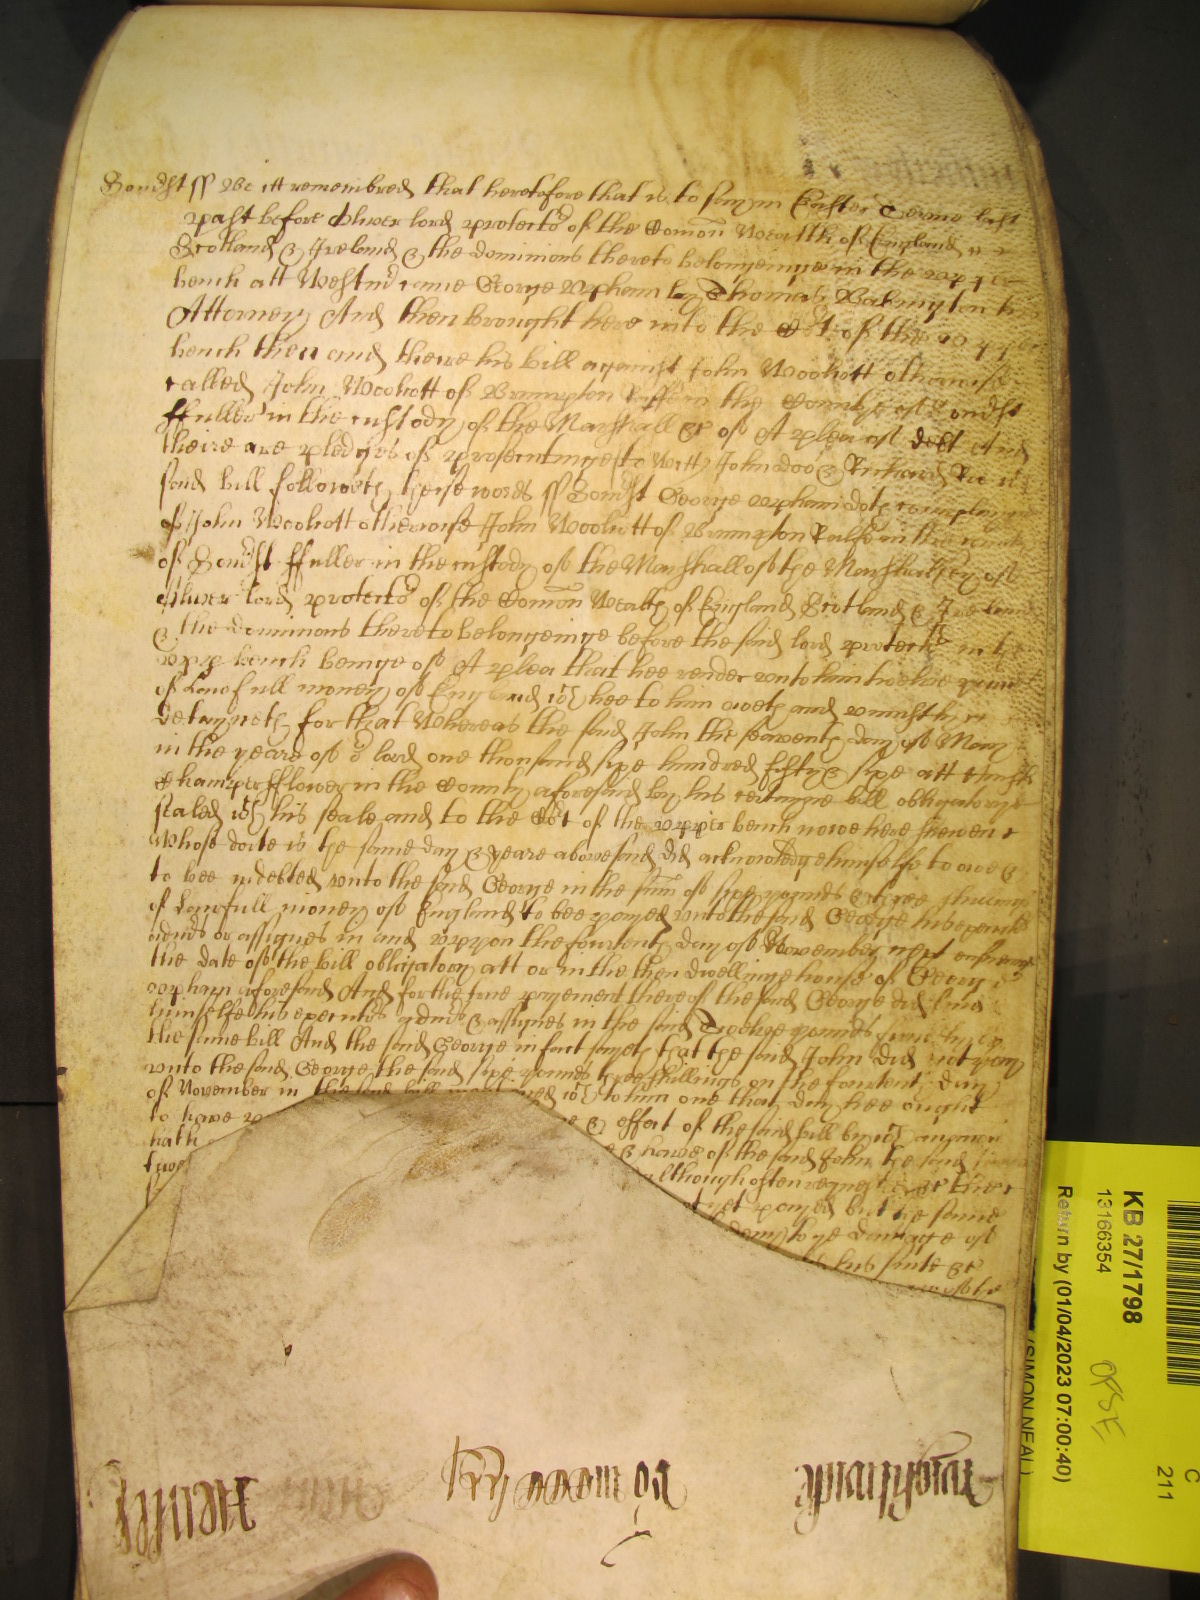 Somst ss Be itt remembred that heretofore that is to say in Easter Terme last
past before Oliver lord protector of the Comon Wealth of England
Scotland & Ireland & the dominions thereto belongeinge in the upper
bench att Westmr came George Upham by Thomas Babington his
Attorney And then brought here into the Cort of the upper
bench then and theire his bill against John Woolcott otherwise
called John Woolcott of Brumpton Raffe in the County of Somst
ffuller in the custody of the Marshall &c of A plea of debt And
theire are pledges of prosecutinge to witt John doo & Richard Roo wch
said bill followeth theise words ss Somst George Upham doth complayne
of John Woolcott otherwise John Woolcott of Brumpton Ralfe in the County
of Somst ffuller in the custody of the Marshall of the Marshallsey of
Oliver lord protector of the Comon Wealth of England Scotland & Ireland
& the dominions thereto belongeinge before the said lord protector in the
upp bench beinge of A plea that hee render unto him twelve pounds
of lawfull money of England wch hee to him oweth and uniustly
detayneth for that Whereas the said John the seaventh day of May
in the yeare of or lord one thousand sixe hundred fifty & sixe att
in the County aforesaid by his certayne bill obligatorye
sealed wth his seale and to the Cort of the upper bench nowe here shewen
Whose date is the same day & yeare abovesaid did acknowledge himselfe to owe &
to bee indebted unto the said George in the sum of sixe pounds & three shillings
of lawfull money of England to bee payed unto the said George his
or assignes in and uppon the fourteenth day of November next ensueinge
the date of the bill obligatory att or in the then dwellinge house of George
Upham aforesaid And for the true payement thereof the said George did bind
himselfe his & assignes in the said Twelve pounds
the same bill And the said George in fact sayeth that the said John did not pay
unto the said George the said sixe pounds three shillings on the day
of November in the said bill wch to him one that day hee ought
to have & effect of the said bill by wch
hath & have of the said John the said
although often &c the
yet payed but the same
to ye damage of
his suite &c
Henley
Ro moore
wightwick
KB 27/1798
13166354
Return by (01/04/2023 07:00:40)
(SIMON NEAL)
C
211